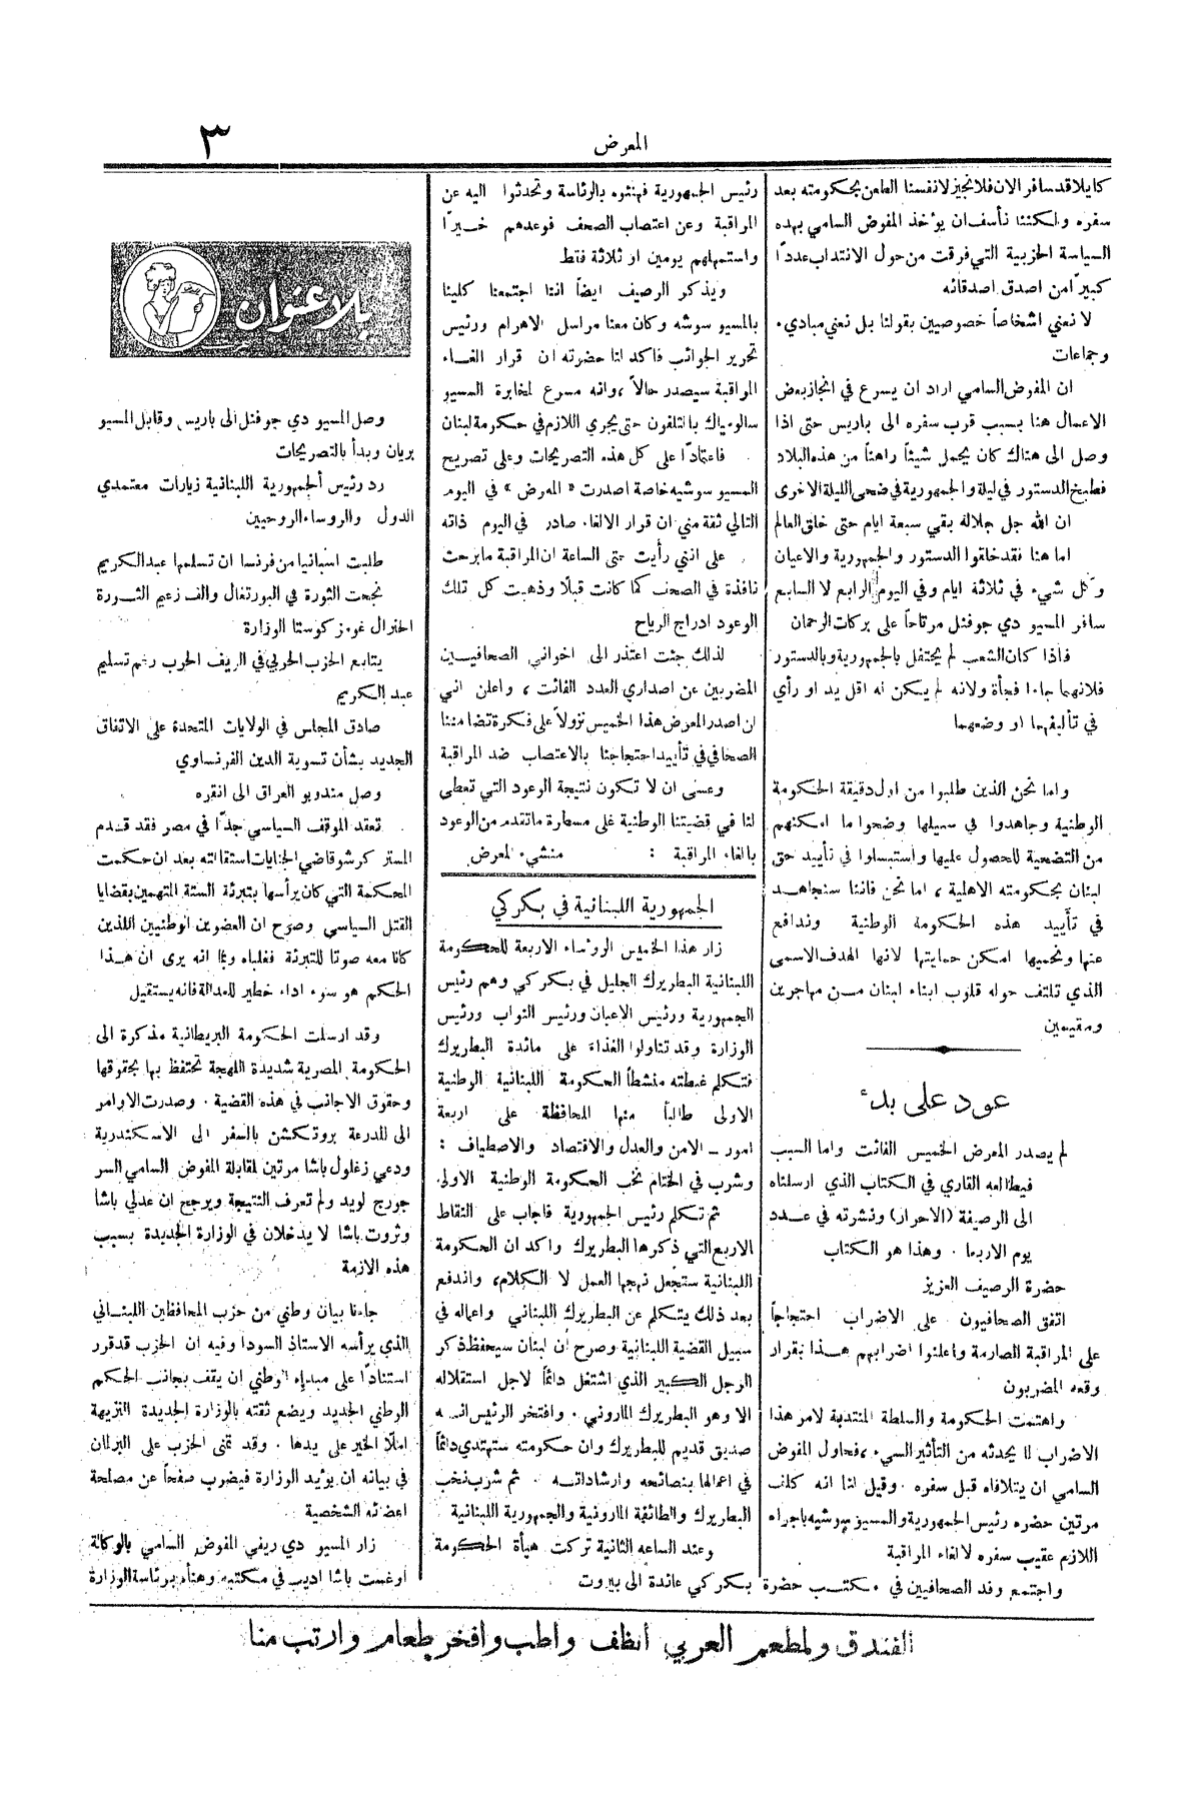 المعرض
٣
كايلا قد سافر الان فلا نجيز لانفسنا الطعن بحكومته بعد
سفره ولكننا نأسف ان يؤخذ المفوض السامي بهذه
السياسة الحزبية التي فرقت من حول الانتداب عدداً
كبيراً من اصدق اصدقائه
لا نعني اشخاصاً خصوصيين بقولنا بل نعني مبادىء
وجماعات
ان المفوض السامي اراد ان يسرع في انجاز بعض
الاعمال هنا بسبب قرب سفره الى باريس حتى اذا
وصل الى هناك كان يحمل شيئاً راهناً من هذه البلاد
فطبخ الدستور في ليلة والجمهورية في ضحى الليلة الاخرى
ان الله جل جلاله بقي سبعة ايام حتى خلق العالم
اما هنا فقد خلقوا الدستور والجمهورية والاعيان
وكل شيء في ثلاثة ايام وفي اليوم الرابع لا السابع
سافر المسيو دي جوفنل مرتاحاً على بركات الرحمان
فاذا كان الشعب لم يحتفل بالجمهورية وبالدستور
فلانهما جاءا فجأة ولانه لم يكن له اقل يد او رأي
في تأليفهما او وضعهما
واما نحن الذين طلبوا من اول دقيقة الحكومة
الوطنية وجاهدوا في سبيلها وضحوا ما امكنهم
من التضحية للحصول عليها واستبسلوا في تأييد حق
لبنان بحكومته الاهلية ، اما نحن فاننا سنجاهد
في تأييد هذه الحكومة الوطنية وندافع
عنها ونحميها امكن حمايتها لانها الهدف الاسمى
الذي تلتف حوله قلوب ابناء لبنان من مهاجرين
ومقيمين
عود على بدء
لم يصدر المعرض الخميس الفائت واما السبب
فيطالعه القاري في الكتاب الذي ارسلناه
الى الرصيفة (الاحرار) ونشرته في عدد
يوم الاربعا . وهذا هو الكتاب
حضرة الرصيف العزيز
اتفق الصحافيون على الاضراب احتجاجاً
على المراقبة الصارمة واعلنوا اضرابهم هذا بقرار
وقعه المضربون
واهتمت الحكومة والسلطة المنتدبة لامر هذا
الاضراب لما يحدثه من التأثير السيء ، فحاول المفوض
السامي ان يتلافاه قبل سفره . وقيل لنا انه كلف
مرتين حضره رئيس الجمهورية والمسيو سوشيه باجراء
اللازم عقيب سفره لالغاء المراقبة
واجتمع وفد الصحافيين في مكتب حضرة
رئيس الجمهورية فهنئوه بالرئاسة وتحدثوا اليه عن
المراقبة وعن اعتصاب الصحف فوعدهم خيراً
واستمهلهم يومين او ثلاثة فقط
ويذكر الرصيف ايضاً اننا اجتمعنا كلينا
بالمسيو سوشه وكان معنا مراسل الاهرام ورئيس
تحرير الجوائب فاكد لنا حضرته ان قرار الغاء
المراقبة سيصدر حالاً ، وانه مسرع لمخابرة المسيو
سالومياك بالتلفون حتى يجري اللازم في حكومة لبنان
فاعتماداً على كل هذه التصريحات وعلى تصريح
المسيو سوشيه خاصة اصدرت « المعرض » في اليوم
التالي ثقة مني ان قرار الالغاء صادر في اليوم ذاته
على انني رأيت حتى الساعة ان المراقبة ما برحت
نافذة في الصحف كما كانت قبلاً وذهبت كل تلك
الوعود ادراج الرياح
لذلك جئت اعتذر الى اخواني الصحافيين
المضربين عن اصداري العدد الفائت ، واعلن اني
لن اصدر المعرض هذا الخميس نزولاً على فكرة تضامننا
الصحافي في تأييد احتجاجنا بالاعتصاب ضد المراقبة
وعسى ان لا تكون نتيجة الوعود التي تعطى
لنا في قضيتنا الوطنية على مسطرة ما تقدم من الوعود
بالغاء المراقبة : منشىء المعرض
الجمهورية اللبنانية في بكركي
زار هذا الخميس الروءساء الاربعة للحكومة
اللبنانية البطريرك الجليل في بكركي وهم رئيس
الجمهورية ورئيس الاعيان ورئيس النواب ورئيس
الوزارة وقد تناولوا الغذاء على مائدة البطريرك
فتكلم غبطته منشطاً الحكومة اللبنانية الوطنية
الاولى طالباً منها المحافظة على اربعة
امور ـ الامن والعدل والاقتصاد والاصطياف :
وشرب في الختام نخب الحكومة الوطنية الاولى
ثم تكلم رئيس الجمهورية فاجاب على النقاط
الاربع التي ذكرها البطريرك واكد ان الحكومة
اللبنانية ستجعل نهجها العمل لا الكلام ، واندفع
بعد ذلك يتكلم عن البطريرك اللبناني واعماله في
سبيل القضية اللبنانية وصرح أن لبنان سيحفظ ذكر
الرجل الكبير الذي اشتغل دائماً لاجل استقلاله
الا وهو البطريرك الماروني . وافتخر الرئيس انه
صديق قديم للبطريرك وان حكومته ستهتدي دائماً
في اعمالها بنصائحه وارشاداته . ثم شرب نخب
البطريرك والطائفة المارونية والجمهورية اللبنانية
وعند الساعه الثانية تركت هيأة الحكومة
بكركي عائدة الى بيروت
بلا عنوان
وصل المسيو دي جوفنل الى باريس وقابل المسيو
بريان وبدأ بالتصريحات
رد رئيس الجمهورية اللبنانية زيارات معتمدي
الدول والروساء الروحيين
طلبت اسبانيا من فرنسا ان تسلمها عبد الكريم
نجحت الثورة في البورتغال والف زعيم الثورة
الجنرال غومز كوستا الوزارة
يتابع الحزب الحربي في الريف الحرب رغم تسليم
عبد الكريم
صادق المجلس في الولايات المتحدة على الاتفاق
الجديد بشأن تسوية الدين الفرنساوي
وصل مندوبو العراق الى انقره
تعقد الموقف السياسي جداً في مصر فقد قدم
المستر كرشو قاضي الجنايات استقالته بعد ان حكمت
المحكمة التي كان يرأسها بتبرئة الستة المتهمين بقضايا
القتل السياسي وصرح ان العضوين الوطنيين اللذين
كانا معه صوتا للتبرئة فغلباه وبما انه يرى ان هذا
الحكم هو سوء اداء خطير للعدالة فانه يستقيل
وقد ارسلت الحكومة البريطانية مذكرة الى
الحكومة المصرية شديدة اللهجة تحتفظ بها بحقوقها
وحقوق الاجانب في هذه القضية . وصدرت الاوامر
الى المدرعة بروتكشن بالسفر الى الاسكندرية
ودعي زغلول باشا مرتين لمقابلة المفوض السامي السر
جورج لويد ولم تعرف النتيجة ويرجح ان عدلي باشا
وثروت باشا لا يدخلان في الوزارة الجديدة بسبب
هذه الازمة
جاءنا بيان وطني من حزب المحافظين اللبناني
الذي يرأسه الاستاذ السودا وفيه ان الحزب قد قرر
استناداً على مبدإه الوطني ان يقف بجانب الحكم
الوطني الجديد ويضع ثقته بالوزارة الجديدة النزيهة
املاً الخير على يدها . وقد تمنى الحزب على البرلمان
في بيانه ان يؤيد الوزارة فيضرب صفحاً عن مصلحة
اعضائه الشخصية
زار المسيو دي ريفي المفوض السامي بالوكالة
اوغست باشا اديب في مكتبه وهنأه برئاسة الوزارة
الفندق والمطعم العربي انظف واطب وافخر طعام وارتب منا